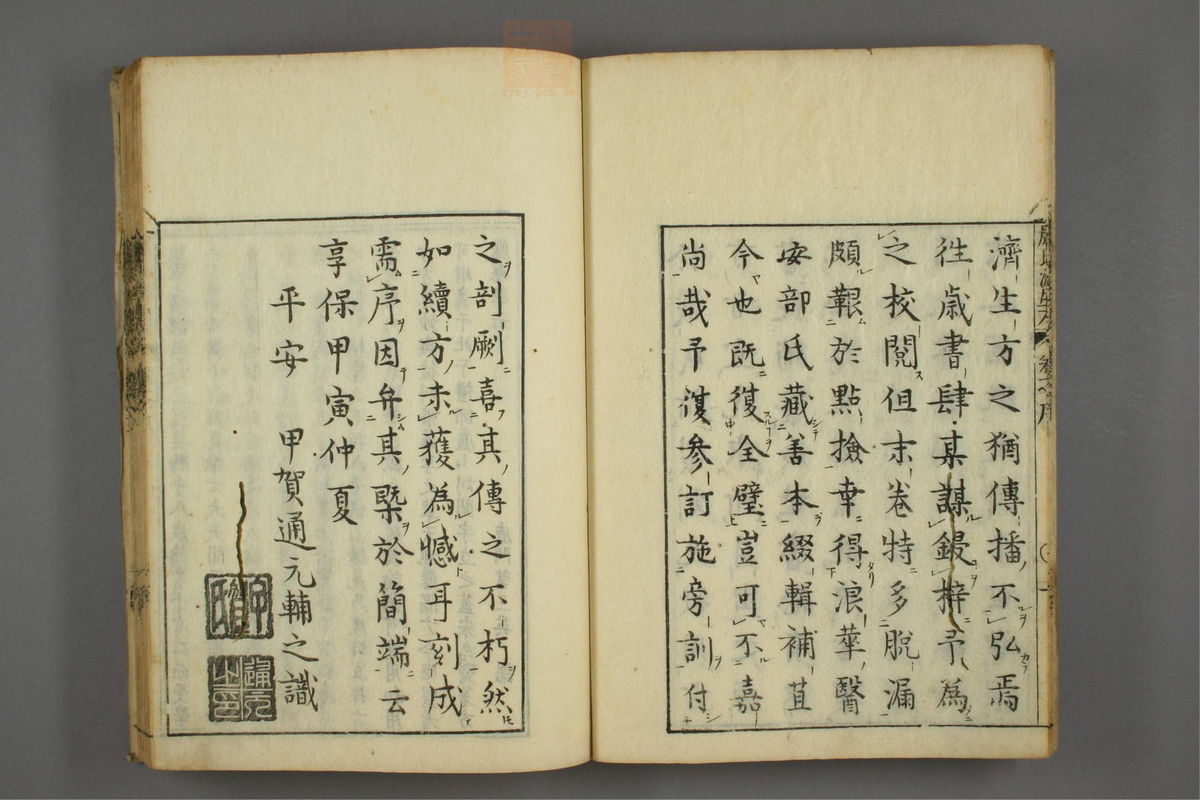 濟生方之猶傳播不弘焉
徃歳書肆某謀鋟梓予爲
之校閲但末卷特多脱漏
頗艱於點撿幸得浪華醫
安部氏藏善本綴輯補苴
今也既復全璧豈可不嘉
尚哉予復參訂施旁訓付
之剖劂喜其傳之不朽然
如續方未獲為憾耳刻成
需序因弁其槩於簡端云
享保甲寅仲夏
平安 甲賀通元輔之識
通元
之印